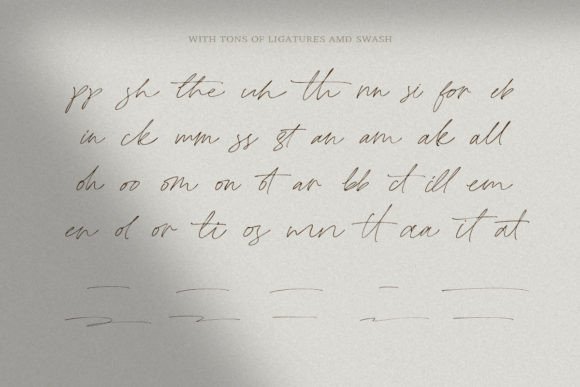 WITH TONS OF LIGATURES AMD SWASH
pp sh the wh th nn si for ck
in ck mm ss st an am ak all
oh oo om on ot ar bb ct ill em
en ol or ti os mn tt aa it at